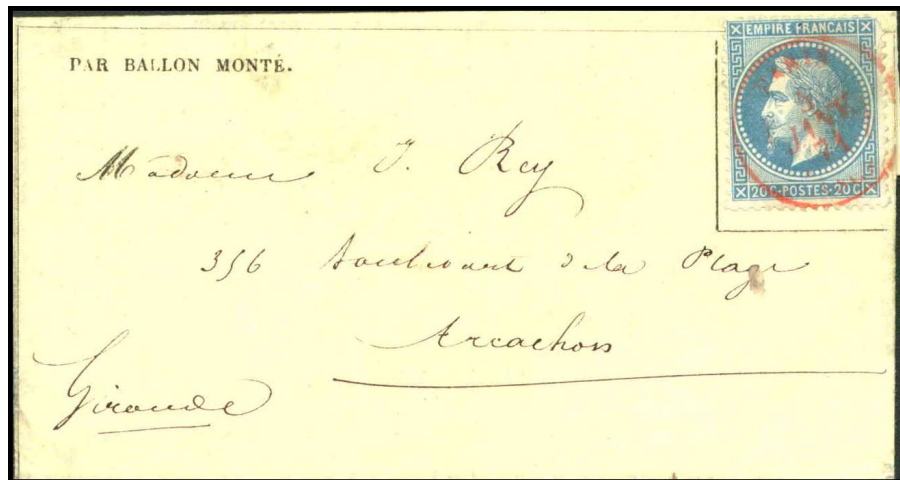 PAR BALLON MONTÉ.
EMPIRE FRANCAIS
PARIS
5
JANV.
71
20 C·POSTES·20 C
Madame J. Rey
356 boulevart de la Plage
Arcachon
Gironde